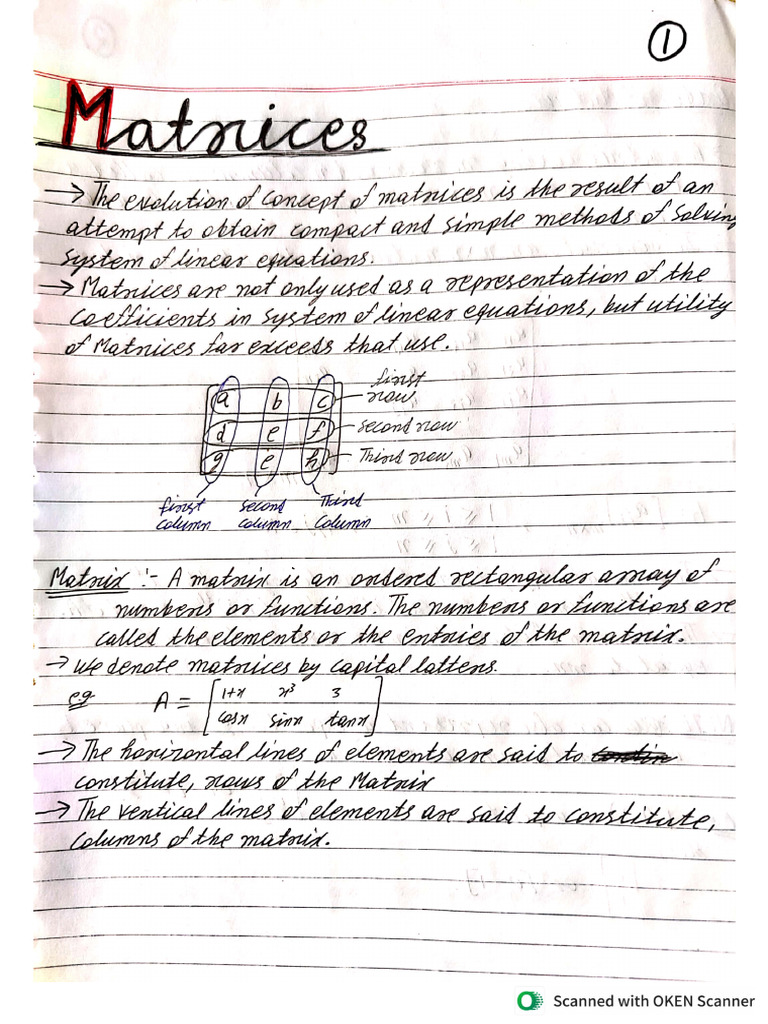 1
Matrices
→ The evolution of concept of matrices is the result of an
attempt to obtain compact and simple methods of solving
system of linear equations.
→ Matrices are not only used as a representation of the
coefficients in system of linear equations, but utility
of Matrices far exceeds that use.
a b c first row
d e f second row
g e h Third row
first column second column Third column
Matrix :- A matrix is an ordered rectangular array of
numbers or functions. The numbers or functions are
called the elements or the entries of the matrix.
→ We denote matrices by capital latters.
e.g A = [1+x x³ 3
cosx sinx tanx]
→ The horizontal lines of elements are said to
constitute, rows of the Matrix
→ The vertical lines of elements are said to constitute,
columns of the matrix.
Scanned with OKEN Scanner